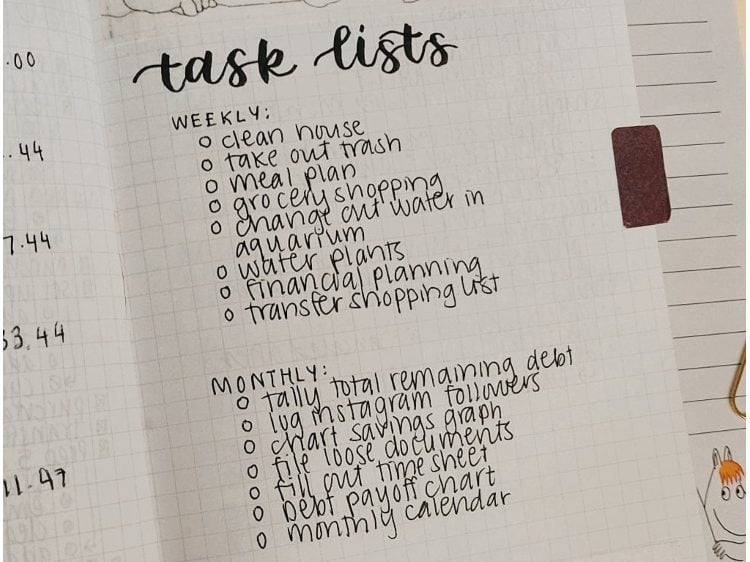 .00
.44
7.44
33.44
11.47
task lists
WEEKLY:
o clean house
o take out trash
o meal plan
o grocery shopping
o change out water in
aquarium
o water plants
o financial planning
o transfer shopping list
MONTHLY:
o tally total remaining debt
o log instagram followers
o chart savings graph
o file loose documents
o fill out time sheet
o Debt payoff chart
o monthly calendar